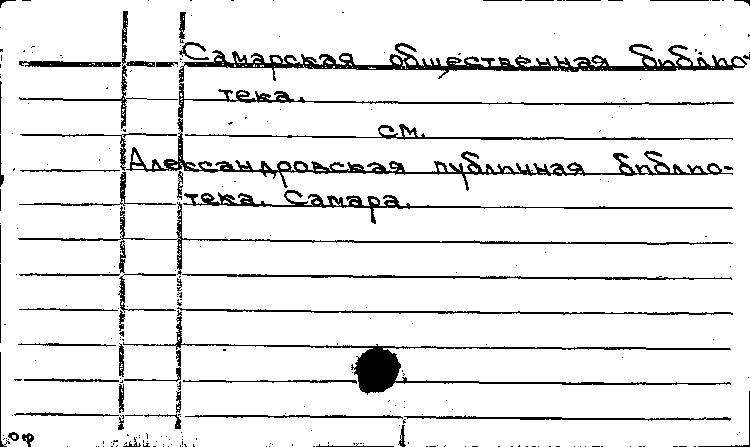 Самарская общественная библио-
тека.
см.
Александровская публичная библио-
тека. Самара.
оф